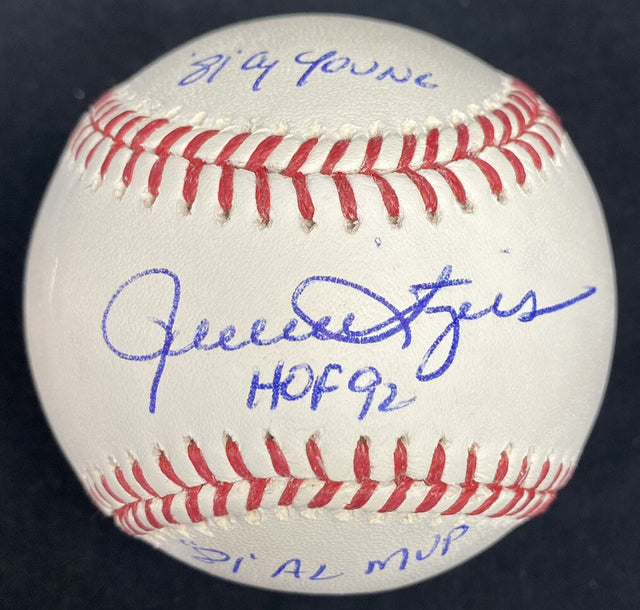 '81 Cy YOUNG
Rollie Fingers
HOF 92
'81 AL MVP